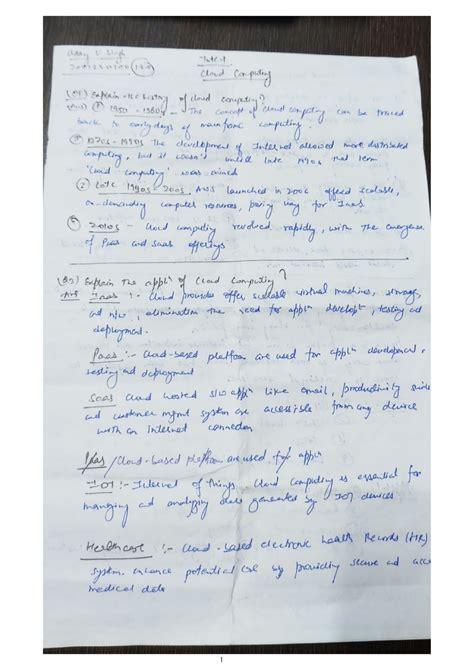 Cloud Computing
(Q1) Explain the history of cloud computing?
(Ans) 1950 - 1960s - The concept of cloud computing can be traced
back to early days of mainframe computing.
1970s - 1990s The development of Internet allowed more distributed
computing, but it wasn't until late 1990s that term
"cloud computing" was coined
Late 1990s - 2000s, AWS launched in 2006 offered scalable,
on-demanding computer resources, paving way for IAAS.
2010s - Cloud computing revolved rapidly, with the emergence
of Paas and saas offerings
(Q2) Explain the appln of Cloud Computing?
Ans Iaas :- Cloud provides offer scalable virtual machines, storage,
and n/w, eliminating the need for appln develop, testing ad
deployment.
Paas :- Cloud-based platform are used for appln development,
testing ad deployment
Saas Cloud hosted s/w appln like email, productivity suite
ad customer mgmt system are accessible from any device
with an Internet connection
Paas / Cloud-based platform are used for appln
IOT :- Internet of things, Cloud Computing is essential for
managing ad analyzing data generated by IOT devices
Healthcare :- Cloud-based electronic health Records (HR)
system. enhance potential by providing secure ad
medical data
1